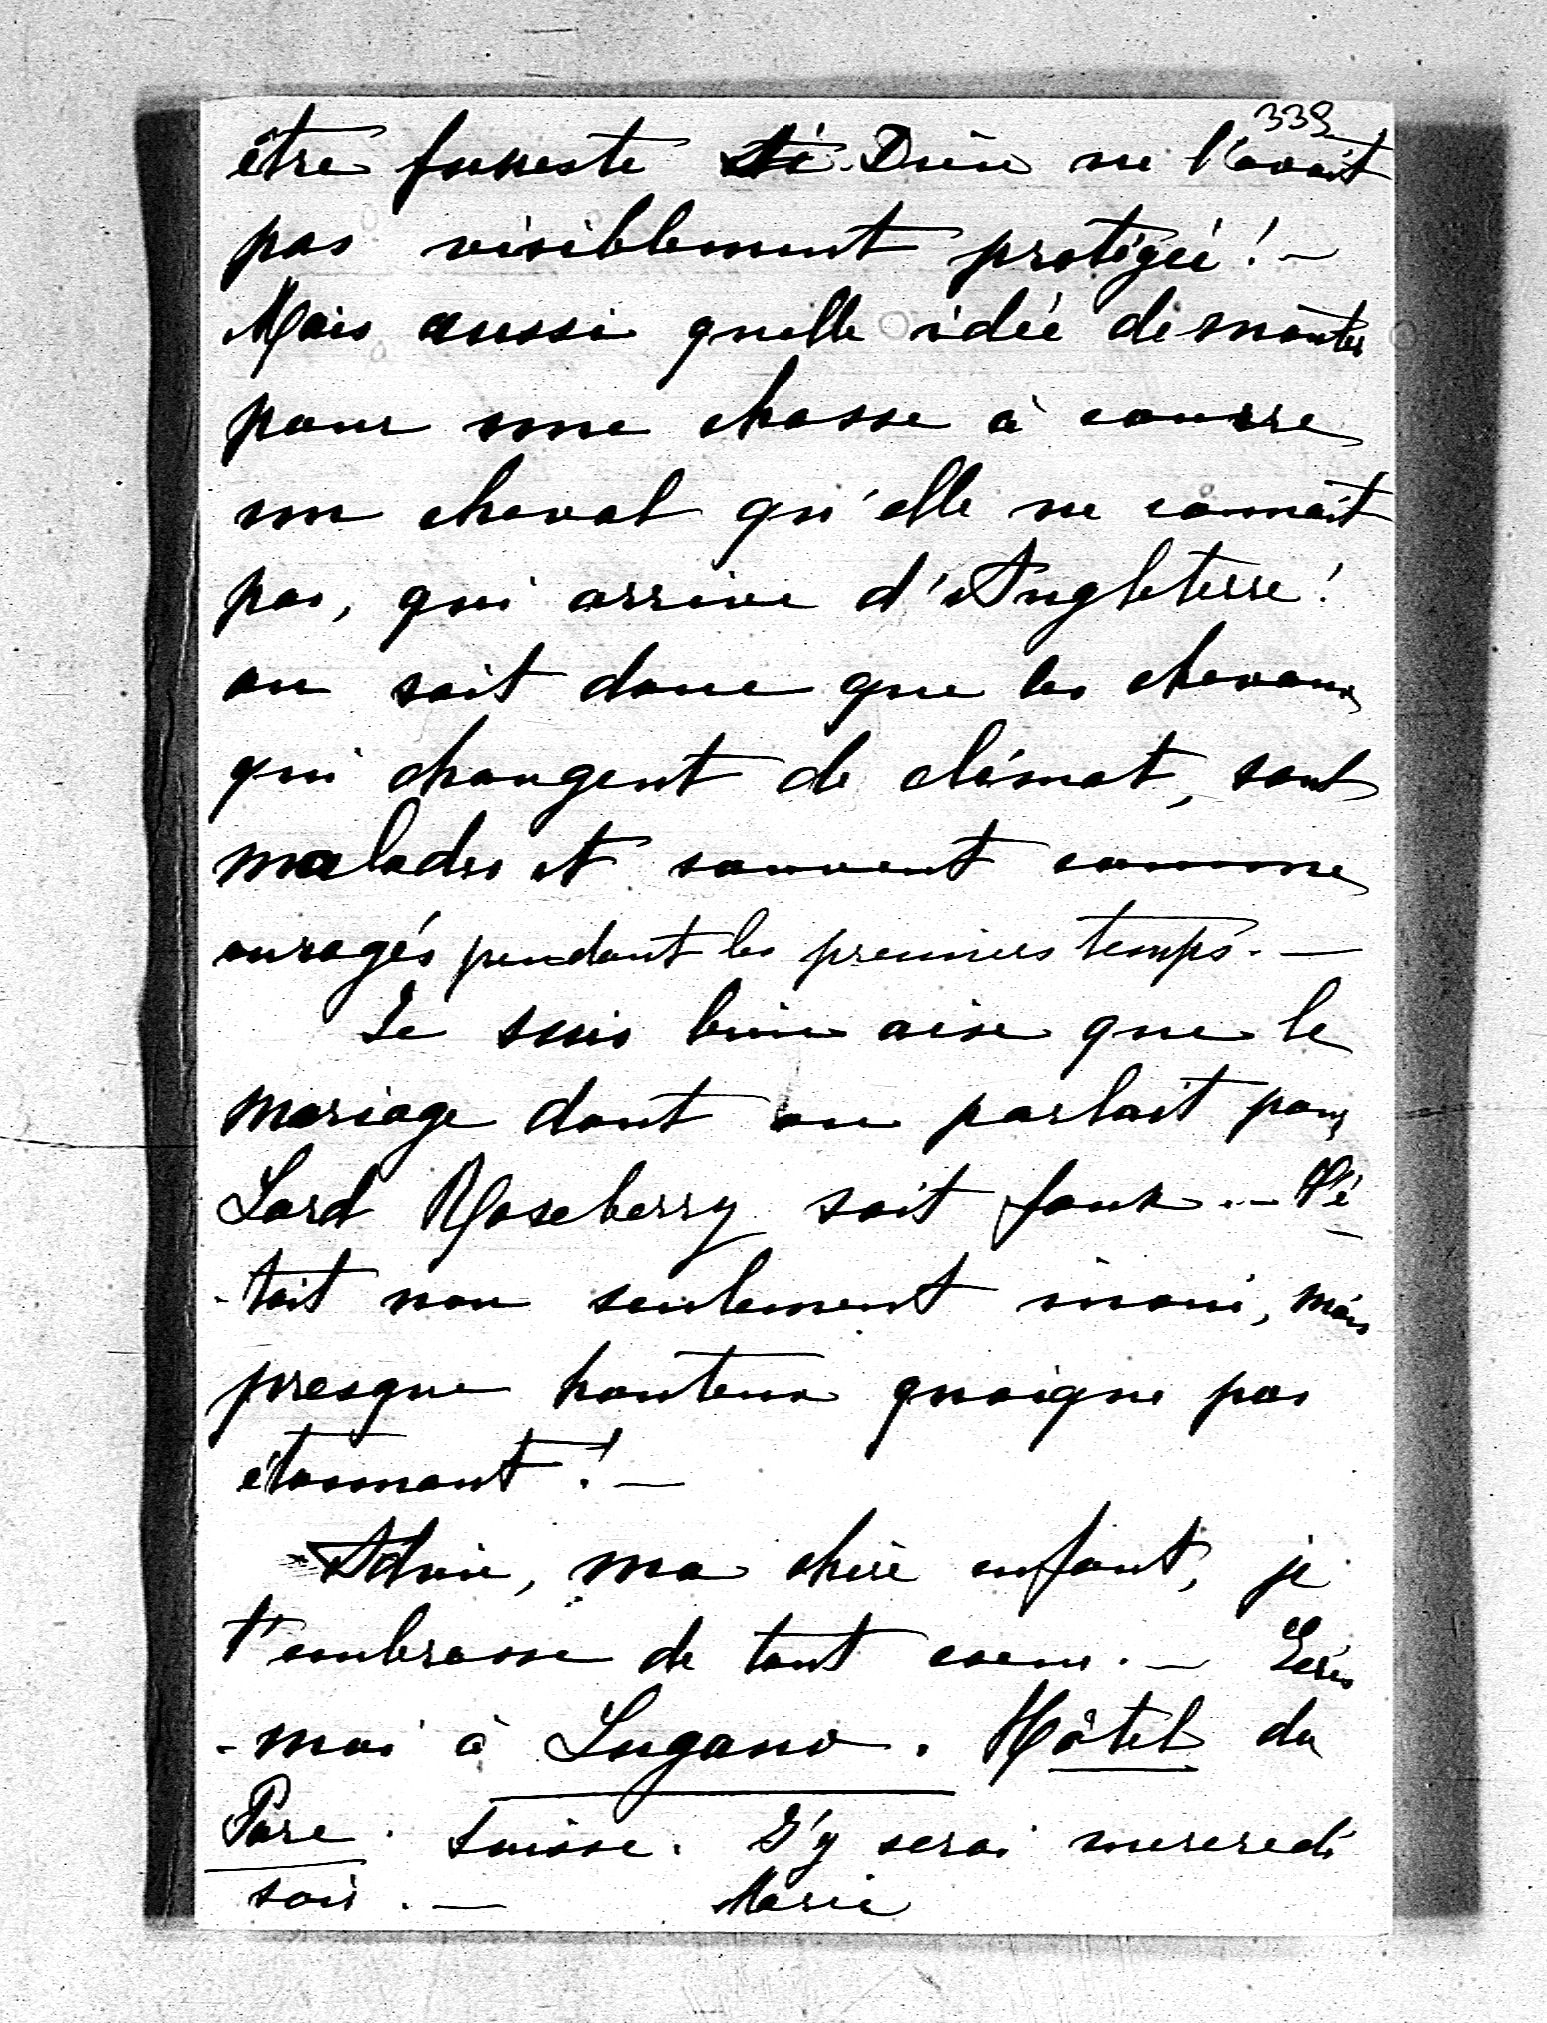 339
être funeste si Dieu ne l'avait
pas visiblement protégée! —
Mais aussi quelle idée de monter
pour une chasse à courre
un cheval qu'elle ne connait
pas, qui arrive d'Angleterre!
on sait donc que les chevaux
qui changent de climat, sont
malades et souvent comme
enragés pendant les premiers temps. —
Je suis bien aise que le
mariage dont on parlait pour
Lord Roseberry soit faux. — C'é
-tait non seulement inoui, mais
presque honteux quoique pas
étonnant! —
Adieu, ma chère enfant, je
t'embrasse de tout coeur. — Ecris
-moi à Lugano. Hôtel du
Parc. Suisse. J'y serai mercredi
soir. — Marie